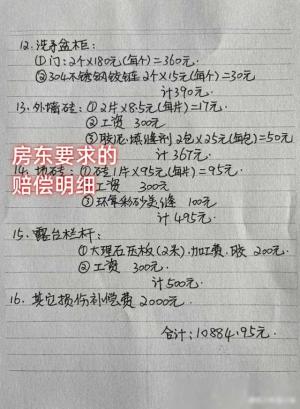 12. 洗手盆柜：
①门：2个×180元(每个)=360元
②304不锈钢铰链 2个×15元(每个)=30元
计390元.
13. 外墙砖：①2片×8.5元(每片)=17元
②工资 300元
③胶泥.填缝剂 2包×25元(每包)=50元
计367元.
房东要求的
赔偿明细
14. 地砖：①砖1片×95元(每片)=95元
②工资 300元
③环氧彩砂美缝 100元
计495元.
15. 露台栏杆：
①大理石压板(2米),加工费.胶 200元
②工资 300元
计500元.
16. 其它损伤补偿费 2000元
合计：10884.95元.